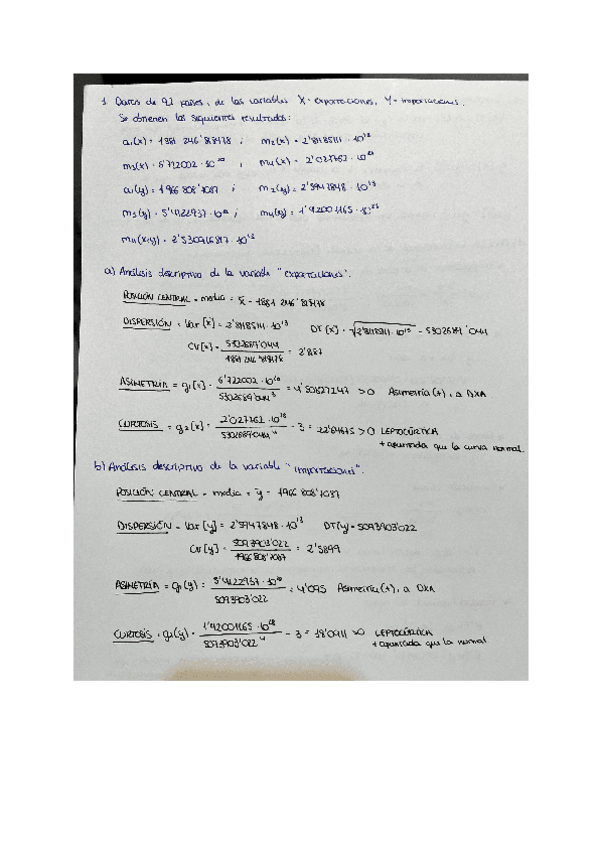 1 Datos de 92 países, de las variables X= exportaciones, Y= importaciones.
Se obtienen los siguientes resultados:
a₁(x) = 1881 246' ; m₂(x) = 2'8118511 · 10¹³
m₃(x) = 6'712002 · 10²⁰ ; m₄(x) = 2'027762 · 10²⁸
a₁(y) = 1966 808'7087 ; m₂(y) = 2'5947848 · 10¹³
m₃(y) = 5'4122937 · 10²⁰ ; m₄(y) = 1'42001165 · 10²⁸
m₁₁(x,y) = · 10¹³
a) Análisis descriptivo de la variable "exportaciones".
POSICIÓN CENTRAL = media = x̄ = 1881 246'
DISPERSIÓN = Var [x] = 2'8118511 · 10¹³ DT [x] = √2'8118511 · 10¹³ = 5302687'044
CV [x] = 5302687'044 / 1881 246' = 2'887
ASIMETRIA = g₁[x] = 6'712002 · 10²⁰ / 5302687'044³ = 4'501627247 > 0 Asimetría (+), a DXA
CURTOSIS = g₂[x] = 2'027762 · 10²⁸ / 5302687'044⁴ - 3 = 22'64675 > 0 LEPTOCÚRTICA
+ apuntada que la curva normal.
b) Análisis descriptivo de la variable "importaciones".
POSICIÓN CENTRAL = media = ȳ = 1966 808'7087
DISPERSIÓN = Var [y] = 2'5947848 · 10¹³ DT(y = 5093903'022
CV [y] = 5093903'022 / 1966 808'7087 = 2'5899
ASIMETRÍA = g₁(y) = 5'4122937 · 10²⁰ / 5093903'022 = 4'095 Asimetría (+), a DXA
CURTOSIS = g₂(y) = 1'42001165 · 10²⁸ / 5093903'022⁴ - 3 = 18'0911 >0 LEPTOCÚRTICA
+ apuntada que la normal